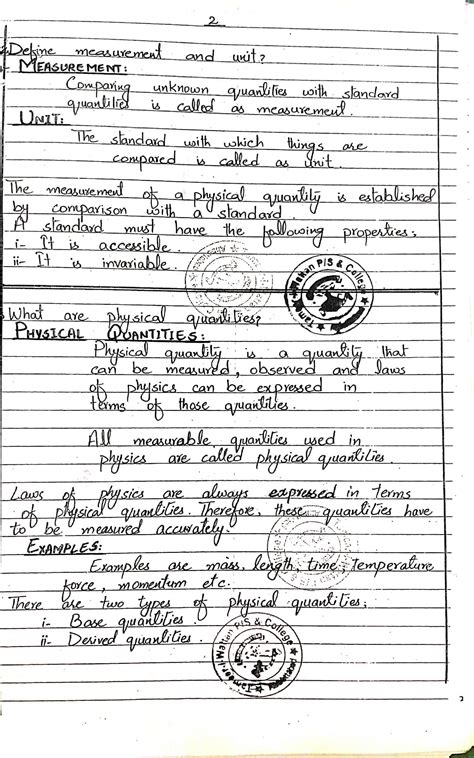 2
Define measurement and unit?
MEASUREMENT:
Comparing unknown quantities with standard
quantities is called as measurement.
UNIT:
The standard with which things are
compared is called as unit.
The measurement of a physical quantity is established
by comparison with a standard.
A standard must have the following properties;
i- It is accessible.
ii- It is invariable.
Wattan P/S & College
What are physical quantities?
PHYSICAL QUANTITIES:
Physical quantity is a quantity that
can be measured, observed and laws
of physics can be expressed in
terms of those quantities.
All measurable quantities used in
physics are called physical quantities.
Laws of physics are always expressed in terms
of physical quantities. Therefore, these quantities have
to be measured accurately.
EXAMPLES:
Examples are mass, length, time, Temperature
force, momentum etc.
There are two types of physical quantities;
i- Base quantities.
ii- Derived quantities.
Wattan P/S & College